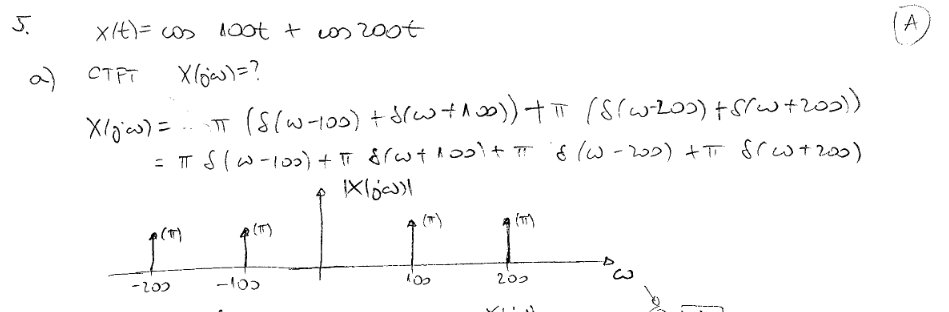 5. x(t)= cos 100t + cos 200t
(A)
a) CTFT X(jω)=?
X(jω)= ... π (δ(ω-100) + δ(ω+100)) + π (δ(ω-200) + δ(ω+200))
= π δ(ω-100) + π δ(ω+100) + π δ(ω-200) + π δ(ω+200)
|X(jω)|
(π) (π) (π) (π)
-200 -100 100 200 ω